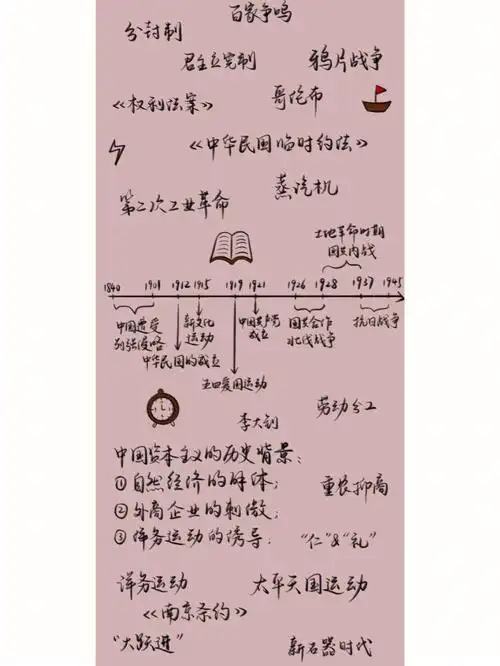 百家争鸣
分封制
君主立宪制 鸦片战争
《权利法案》 哥伦布
《中华民国临时约法》
蒸汽机
第二次工业革命
土地革命时期
国共内战
1840 1901 1912 1915 1919 1921 1926 1928 1937 1945
中国遭受
列强侵略
中华民国的成立
新文化
运动
五四爱国运动
中国共产党
成立
国共合作
北伐战争
抗日战争
李大钊
劳动分工
中国资本主义的历史背景:
①自然经济的解体;
②外商企业的刺激;
③洋务运动的诱导;
重农抑商
“仁”&“礼”
洋务运动 太平天国运动
《南京条约》
“大跃进” 新石器时代